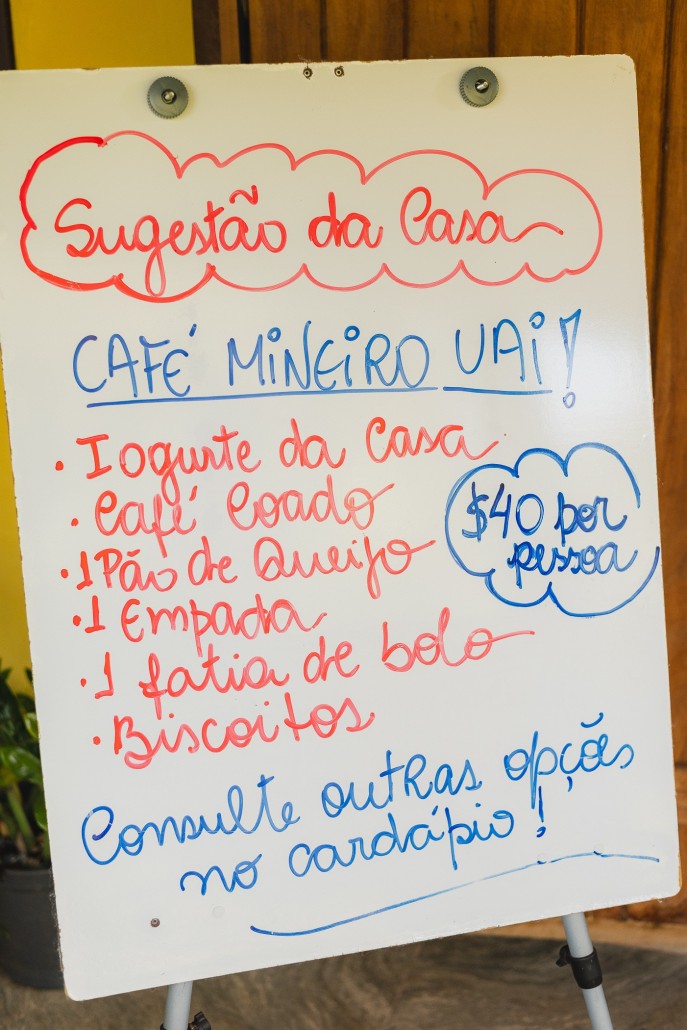 Sugestão da Casa
CAFÉ MINEIRO UAI!
• Iogurte da Casa
• Café Coado
• 1 Pão de Queijo
• 1 Empada
• 1 fatia de bolo
• Biscoitos
$40 por
pessoa
Consulte outras opções
no cardápio!